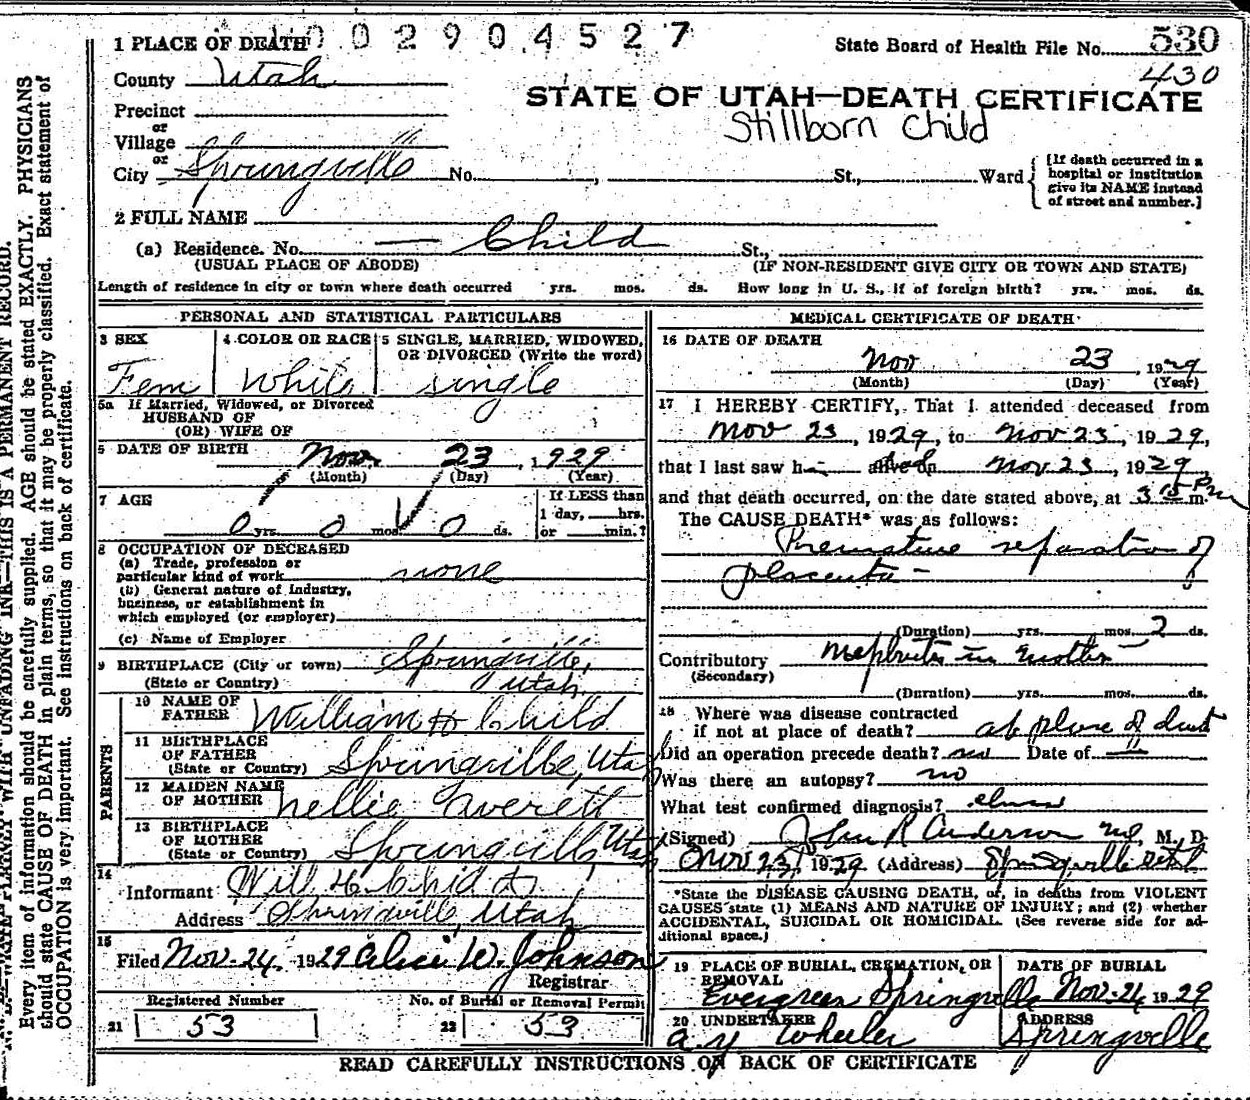 1 PLACE OF DEATH
0 0 2 9 0 4 5 2 7
State Board of Health File No. 530
430
County Utah
STATE OF UTAH—DEATH CERTIFICATE
Stillborn Child
Precinct
or
Village
or
City Springville No. , St., Ward
[If death occurred in a
hospital or institution
give its NAME instead
of street and number.]
2 FULL NAME
— Child
(a) Residence. No. St.,
(USUAL PLACE OF ABODE) (IF NON-RESIDENT GIVE CITY OR TOWN AND STATE)
Length of residence in city or town where death occurred yrs. mos. ds. How long in U. S., if of foreign birth? yrs. mos. ds.
PERSONAL AND STATISTICAL PARTICULARS
3 SEX 4 COLOR OR RACE 5 SINGLE, MARRIED, WIDOWED,
OR DIVORCED (Write the word)
Fem White single
5a If Married, Widowed, or Divorced
HUSBAND OF
(OR) WIFE OF
6 DATE OF BIRTH Nov. 23, 1929
(Month) (Day) (Year)
7 AGE If LESS than
1 day, hrs.
0 yrs. 0 mos. 0 ds. or min.?
8 OCCUPATION OF DECEASED
(a) Trade, profession or
particular kind of work none
(b) General nature of Industry,
business, or establishment in
which employed (or employer)
(c) Name of Employer
9 BIRTHPLACE (City or town) Springville,
(State or Country) Utah
PARENTS
10 NAME OF
FATHER William H Child
11 BIRTHPLACE
OF FATHER
(State or Country) Springville, Utah
12 MAIDEN NAME
OF MOTHER Nellie Averett
13 BIRTHPLACE
OF MOTHER
(State or Country) Springville Utah
14
Informant Will H. Child
Address Springville, Utah
15
Filed Nov. 24, 1929 Alice W. Johnson
Registrar
Registered Number No. of Burial or Removal Permit
21 53 22 53
MEDICAL CERTIFICATE OF DEATH
16 DATE OF DEATH
Nov 23, 1929
(Month) (Day) (Year)
17 I HEREBY CERTIFY, That I attended deceased from
Nov 23, 1929, to Nov 23, 1929,
that I last saw h alive on Nov 23, 1929
and that death occurred, on the date stated above, at 3 15 P m.
The CAUSE DEATH* was as follows:
Premature separation of
placenta —
(Duration) yrs. mos. 2 ds.
Contributory Nephritis in mother
(Secondary)
(Duration) yrs. mos. ds.
18 Where was disease contracted
if not at place of death? at place of death
Did an operation precede death? no Date of
Was there an autopsy? no
What test confirmed diagnosis?
(Signed) John R Anderson MD, M. D.
Nov 23, 1929 (Address) Springville Utah
*State the DISEASE CAUSING DEATH, or, in deaths from VIOLENT
CAUSES state (1) MEANS AND NATURE OF INJURY; and (2) whether
ACCIDENTAL, SUICIDAL OR HOMICIDAL. (See reverse side for ad-
ditional space.)
19 PLACE OF BURIAL, CREMATION, OR
REMOVAL
Evergreen Springville
DATE OF BURIAL
Nov. 24 1929
20 UNDERTAKER
A. Y. Wheeler
ADDRESS
Springville
READ CAREFULLY INSTRUCTIONS ON BACK OF CERTIFICATE
WITH UNFADING INK—THIS IS A PERMANENT RECORD.
Every item of information should be carefully supplied. AGE should be stated EXACTLY. PHYSICIANS
should state CAUSE OF DEATH in plain terms, so that it may be properly classified. Exact statement of
OCCUPATION is very important. See instructions on back of certificate.